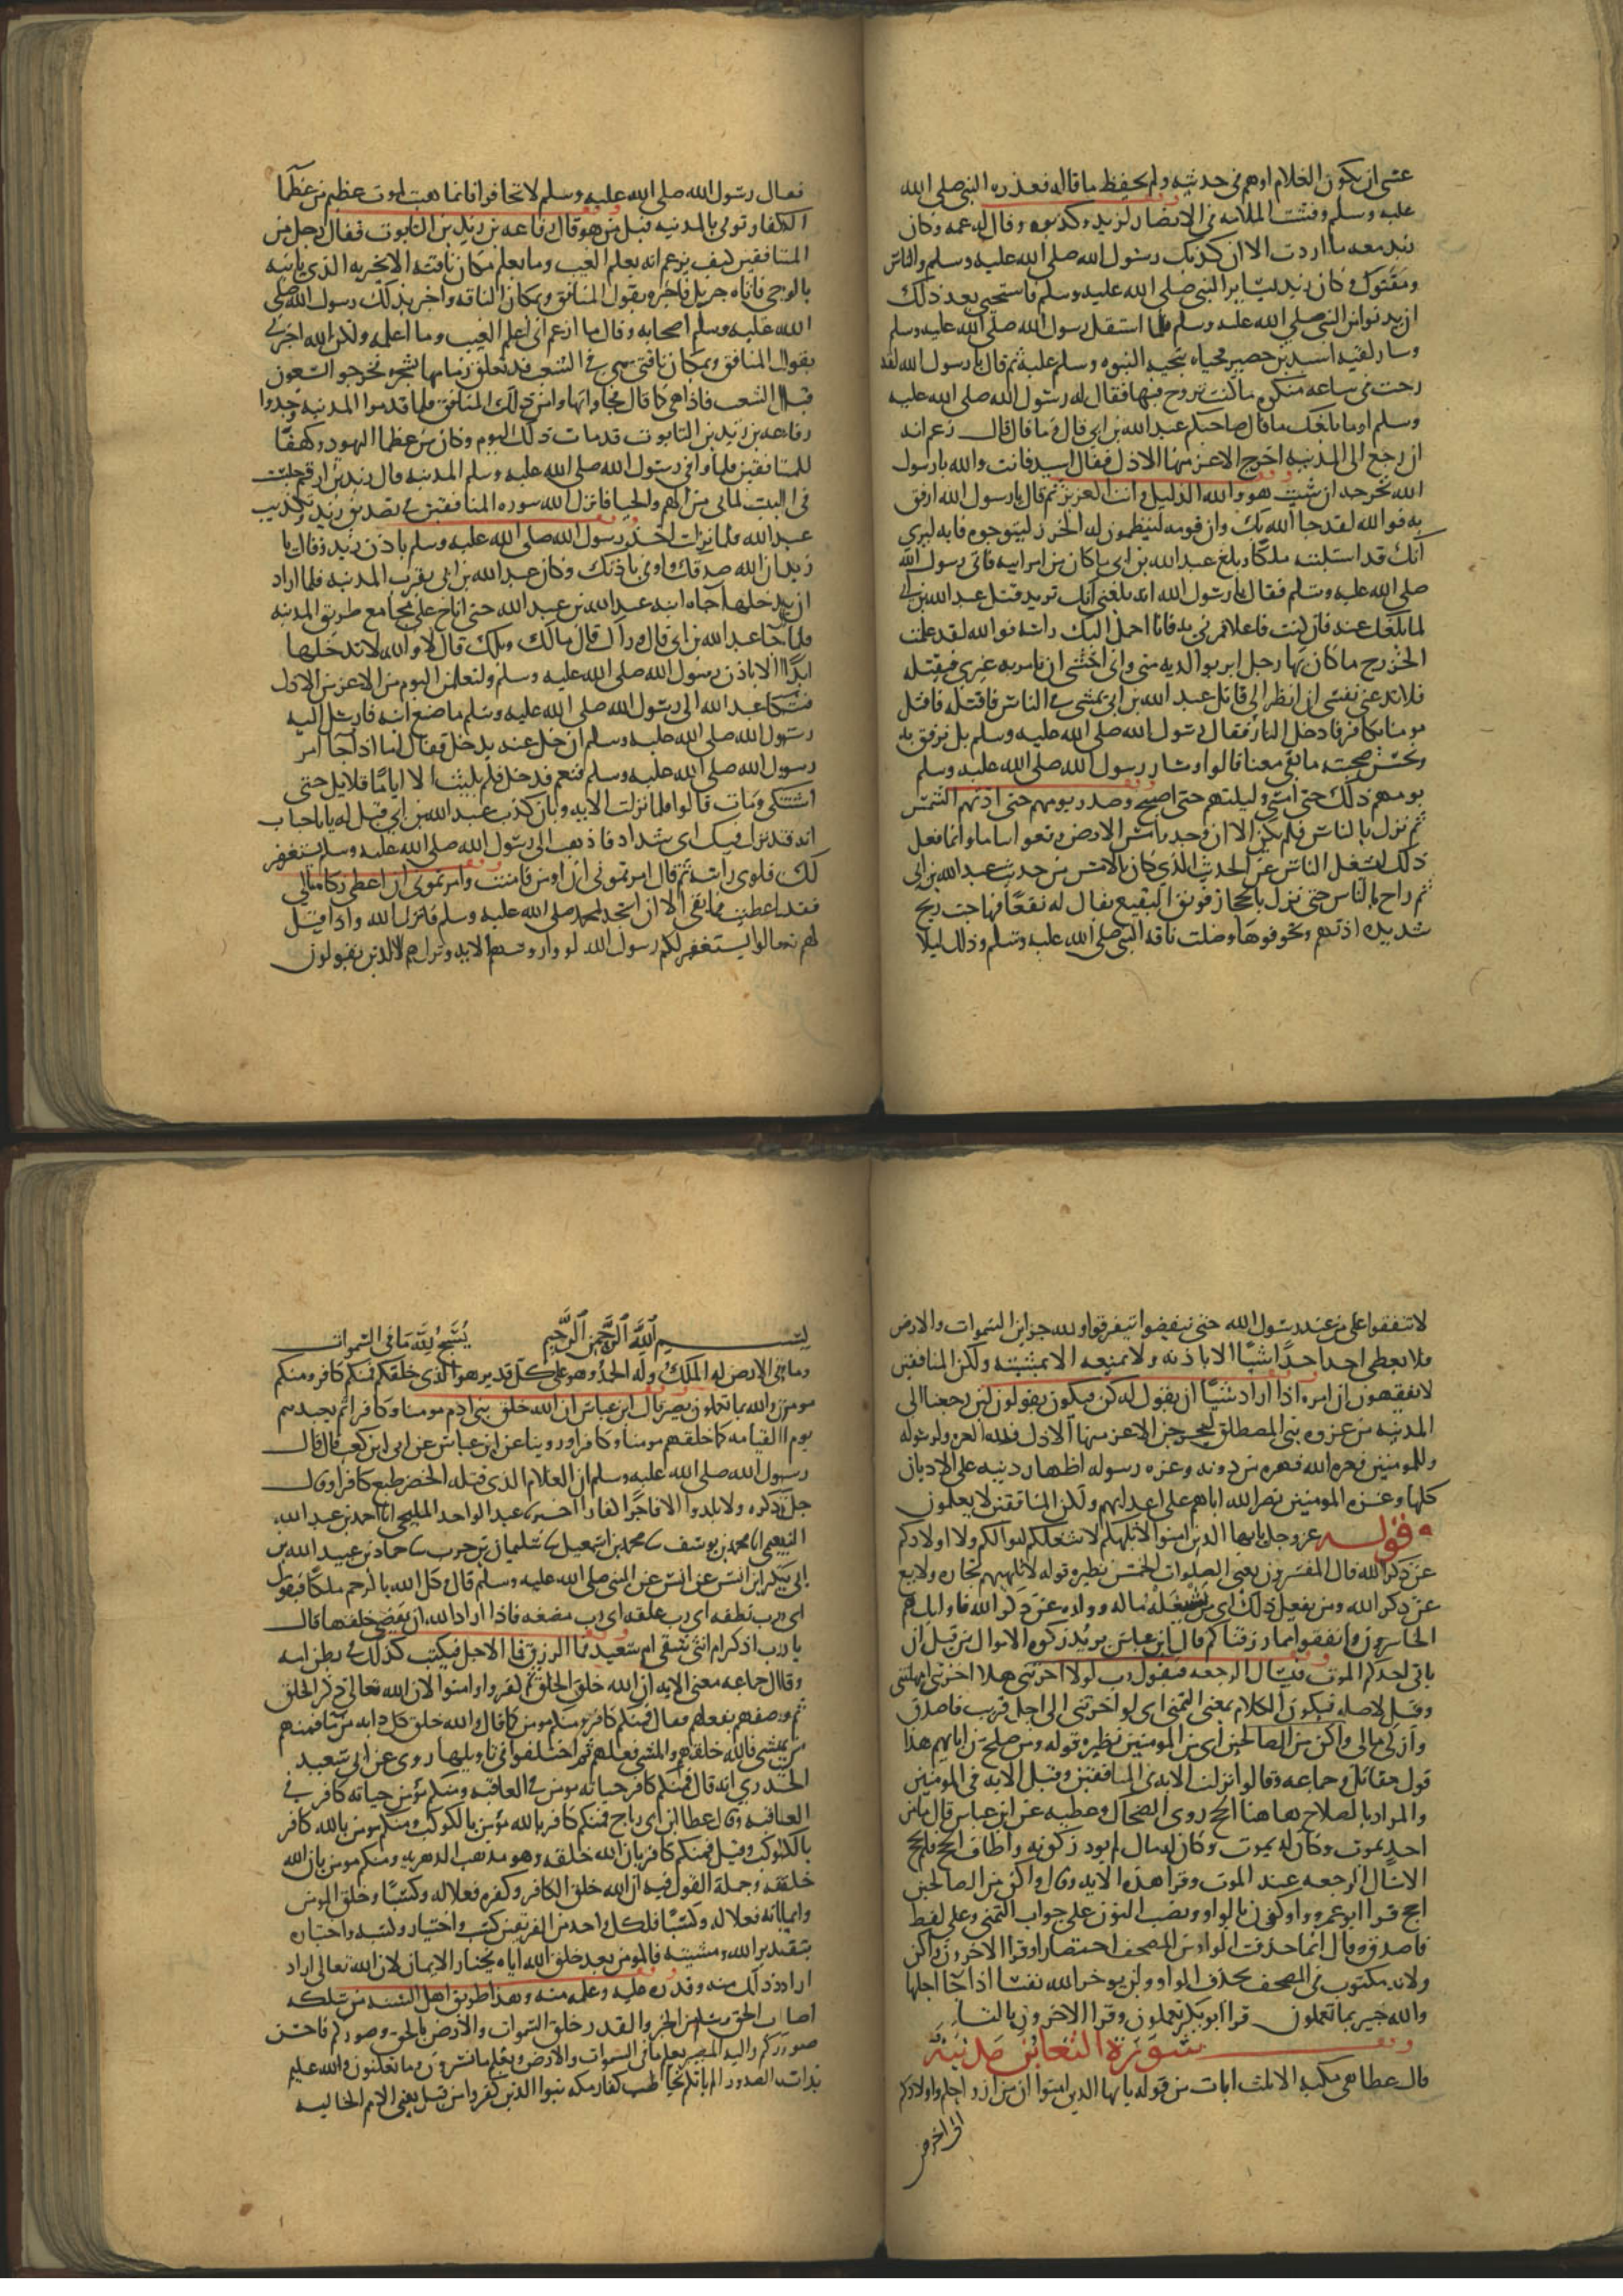 عسى ان يكون الغلام اوهم في حديثه ولم يحفظ ما قاله فعذره النبي صلى الله
عليه وسلم وفشت الملامه في الانصار لزيد وكذبوه وقال له عمه وكان
زيد معه ما اردت الا ان كذبك رسول الله صلى الله عليه وسلم والناس
ومقتوك وكان زيد يساير النبي صلى الله عليه وسلم فاستحيى بعد ذلك
ان يدنو من النبي صلى الله عليه وسلم فلما استقل رسول الله صلى الله عليه وسلم
وسار لقيه اسيد بن حضير فحياه بتحيه النبوه وسلم عليه ثم قال يا رسول الله لقد
رحت في ساعه منكره ما كنت تروح فيها فقال له رسول الله صلى الله عليه
وسلم اوما بلغك ما قال صاحبكم عبد الله بن ابي قال وما قال قال زعم انه
ان رجع الى المدينه اخرج الاعز منها الاذل فقال اسيد فانت والله يا رسول
الله تخرجه ان شيت هو والله الذليل وانت العزيز ثم قال يا رسول الله ارفق
به فوالله لقد جا الله بك وان قومه لينظمون له الخرز ليتوجوه فانه ليرى
انك قد استلبته ملكا وبلغ عبد الله بن ابي ما كان من امر ابيه فاتى رسول الله
صلى الله عليه وسلم فقال يا رسول الله انه بلغني انك تريد قتل عبد الله بن ابي
لما بلغك عنه فان كنت فاعلا فمرني به فانا احمل اليك راسه فوالله لقد علمت
الخزرج ما كان بها رجل ابر بوالديه مني واني اخشى ان تامر به غيري فيقتله
فلا تدعني نفسي ان انظر الى قاتل عبد الله بن ابي يمشي في الناس فاقتله فاقتل
مومنا بكافر فادخل النار فقال رسول الله صلى الله عليه وسلم بل نرفق به
ونحسن صحبته ما بقي معنا قالوا وسار رسول الله صلى الله عليه وسلم
يومهم ذلك حتى امسى وليلتهم حتى اصبح وصدر يومهم حتى اذتهم الشمس
ثم نزل بالناس فلم يكن الا ان وجدوا مس الارض وقعوا نياما وانما فعل
ذلك ليشغل الناس عن الحديث الذي كان بالامس من حديث عبد الله بن ابي
ثم راح بالناس حتى نزل بالحجاز فويق البقيع يقال له نقعا فهاجت ريح
شديده اذتهم وتخوفوها وضلت ناقه النبي صلى الله عليه وسلم وذلك ليلا
فقال رسول الله صلى الله عليه وسلم لا تخافوا فانما هبت لموت عظيم من عظما
الكفار توفي بالمدينه قيل من هو قال رفاعه بن زيد بن التابوت فقال رجل من
المنافقين كيف يزعم انه يعلم الغيب وما يعلم مكان ناقته الا يخبره الذي ياتيه
بالوحي فاتاه جبريل فاخبره بقول المنافق وبمكان الناقه واخبر بذلك رسول الله صلى
الله عليه وسلم اصحابه وقال ما ازعم اني اعلم الغيب وما اعلمه ولكن الله اخبرني
بقول المنافق وبمكان ناقتي هي في الشعب قد تعلق زمامها بشجره فخرجوا يسعون
قبل الشعب فاذا هي كما قال فجاوا بها وامن ذلك المنافق فلما قدموا المدينه وجدوا
رفاعه بن زيد بن التابوت قد مات ذلك اليوم وكان من عظما اليهود وكهفا
للمنافقين فلما وافى رسول الله صلى الله عليه وسلم المدينه قال زيد بن ارقم جلست
في البيت لما بي من الهم والحيا فانزل الله سوره المنافقين في تصديق زيد وتكذيب
عبد الله فلما نزلت اخذ رسول الله صلى الله عليه وسلم باذن زيد وقال يا
زيد ان الله صدقك واوفى باذنك وكان عبد الله بن ابي بقرب المدينه فلما اراد
ان يدخلها جاه ابنه عبد الله بن عبد الله حتى اناخ على مجامع طريق المدينه
فلما جا عبد الله بن ابي قال وراك قال مالك ويلك قال لا والله لا تدخلها
ابدا الا باذن رسول الله صلى الله عليه وسلم ولتعلمن اليوم من الاعز من الاذل
فشكا عبد الله الى رسول الله صلى الله عليه وسلم ما صنع ابنه فارسل اليه
رسول الله صلى الله عليه وسلم ان خل عنه يدخل فقال اما اذا جا امر
رسول الله صلى الله عليه وسلم فنعم فدخل فلم يلبث الا اياما قلايل حتى
اشتكى ومات قالوا فلما نزلت الايه وبان كذب عبد الله بن ابي قيل له يا با حباب
انه قد نزل فيك اي شداد فاذهب الى رسول الله صلى الله عليه وسلم يستغفر
لك فلوى راسه ثم قال امرتموني ان اومن فامنت وامرتموني ان اعطي زكاه مالي
فقد اعطيت فما بقي الا ان اسجد لمحمد صلى الله عليه وسلم فانزل الله واذا قيل
لهم تعالوا يستغفر لكم رسول الله لووا روسهم الايه ونزل هم الذين يقولون
لا تنفقوا على من عند رسول الله حتى ينفضوا يتفرقوا ولله خزاين السموات والارض
فلا يعطي احد احدا شيا الا باذنه ولا يمنعه الا بمشيته ولكن المنافقين
لا يفقهون ان امره اذا اراد شيا ان يقول له كن فيكون يقولون لين رجعنا الى
المدينه من غزوه بني المصطلق ليخرجن الاعز منها الاذل ولله العزه ولرسوله
وللمومنين فعزه الله قهره من دونه وعزه رسوله اظهار دينه على الاديان
كلها وعزه المومنين نصر الله اياهم على اعدايهم ولكن المنافقين لا يعلمون
قوله عز وجل يا ايها الذين امنوا لا تلهكم لا تشغلكم اموالكم ولا اولادكم
عن ذكر الله قال المفسرون يعني الصلوات الخمس نظيره قوله لا تلهيهم تجاره ولا بيع
عن ذكر الله ومن يفعل ذلك اي من يشغله ماله وولده عن ذكر الله فاوليك هم
الخاسرون وانفقوا مما رزقناكم قال ابن عباس يريد زكوه الاموال من قبل ان
ياتي احدكم الموت فيسال الرجعه فيقول رب لولا اخرتني هلا اخرتني امهلتني
وقيل لا صله فيكون الكلام بمعنى التمني اي لو اخرتني الى اجل قريب فاصدق
وازكي مالي واكن من الصالحين اي من المومنين نظيره قوله ومن صلح من ابايهم هذا
قول مقاتل وجماعه وقالوا نزلت الايه في المنافقين وقيل الايه في المومنين
والمراد بالصلاح هاهنا الحج روى الضحاك وعطيه عن ابن عباس قال ما من
احد يموت وكان له مال لم يود زكوته واطاق الحج فلم يحج
الا سال الرجعه عند الموت وقرا هذه الايه وقال واكن من الصالحين
احج قرا ابو عمرو واكون بالواو ونصب النون على جواب التمني وعلى لفظ
فاصدق وقال انما حذفت الواو من المصحف اختصارا وقرا الاخرون واكن
ولانه مكتوب في المصحف بحذف الواو ولن يوخر الله نفسا اذا جا اجلها
والله خبير بما تعملون قرا ابو بكر يعملون وقرا الاخرون بالتا
سورة التغابن مدنية
قال عطا هي مكيه الا ثلث ايات من قوله يا ايها الذين امنوا ان من ازواجكم واولادكم
الى اخرهن
بسم الله الرحمن الرحيم يسبح لله ما في السموات
وما في الارض له الملك وله الحمد وهو على كل قدير هو الذي خلقكم فمنكم كافر ومنكم
مومن والله بما تعملون بصير قال ابن عباس ان الله خلق بني ادم مومنا وكافرا ثم يعيدهم
يوم القيامه كما خلقهم مومنا وكافرا وروينا عن ابن عباس عن ابي بن كعب قال قال
رسول الله صلى الله عليه وسلم ان الغلام الذي قتله الخضر طبع كافرا وقال
جل ذكره ولا يلدوا الا فاجرا كفارا اخبرنا عبد الواحد المليحي انا احمد بن عبد الله
النعيمي انا محمد بن يوسف نا محمد بن اسمعيل نا سليمان بن حرب نا حماد بن عبيد الله بن
ابي بكر ابن انس عن انس عن النبي صلى الله عليه وسلم قال وكل الله بالرحم ملكا فيقول
اي رب نطفه اي رب علقه اي رب مضغه فاذا اراد الله ان يقضي خلقها قال
يا رب اذكر ام انثى شقي ام سعيد فما الرزق فما الاجل فيكتب كذلك في بطن امه
وقال جماعه معنى الايه ان الله خلق الخلق ثم كفروا وامنوا لان الله تعالى ذكر الخلق
ثم وصفهم بفعلهم فقال فمنكم كافر ومنكم مومن كما قال والله خلق كل دابه من ما فمنهم
من يمشي فالله خلقهم والمشي فعلهم ثم اختلفوا في تاويلها روي عن ابي سعيد
الخدري انه قال فمنكم كافر حياته مومن في العاقبه ومنكم مومن حياته كافر في
العاقبه وقال عطا ابن ابي رباح فمنكم كافر بالله مومن بالكوكب ومنكم مومن بالله كافر
بالكوكب وقيل فمنكم كافر بان الله خلقه وهو مذهب الدهريه ومنكم مومن بان الله
خلقه وجملة القول فيه ان الله خلق الكافر وكفره فعلا له وكسبا وخلق المومن
وايمانه فعلا له وكسبا فلكل واحد من الفريقين كسب واختيار وكسبه واختياره
بتقدير الله ومشيته فالمومن بعد خلق الله اياه يختار الايمان لان الله تعالى اراد
اراد ذلك منه وقدره عليه وعلمه منه وهذا طريق اهل السنه من سلكه
اصاب الحق وسلم من الجبر والقدر خلق السموات والارض بالحق وصوركم فاحسن
صوركم واليه المصير يعلم ما في السموات والارض ويعلم ما تسرون وما تعلنون والله عليم
بذات الصدور الم ياتكم يخاطب كفار مكه نبوا الذين كفروا من قبل يعني الامم الخاليه